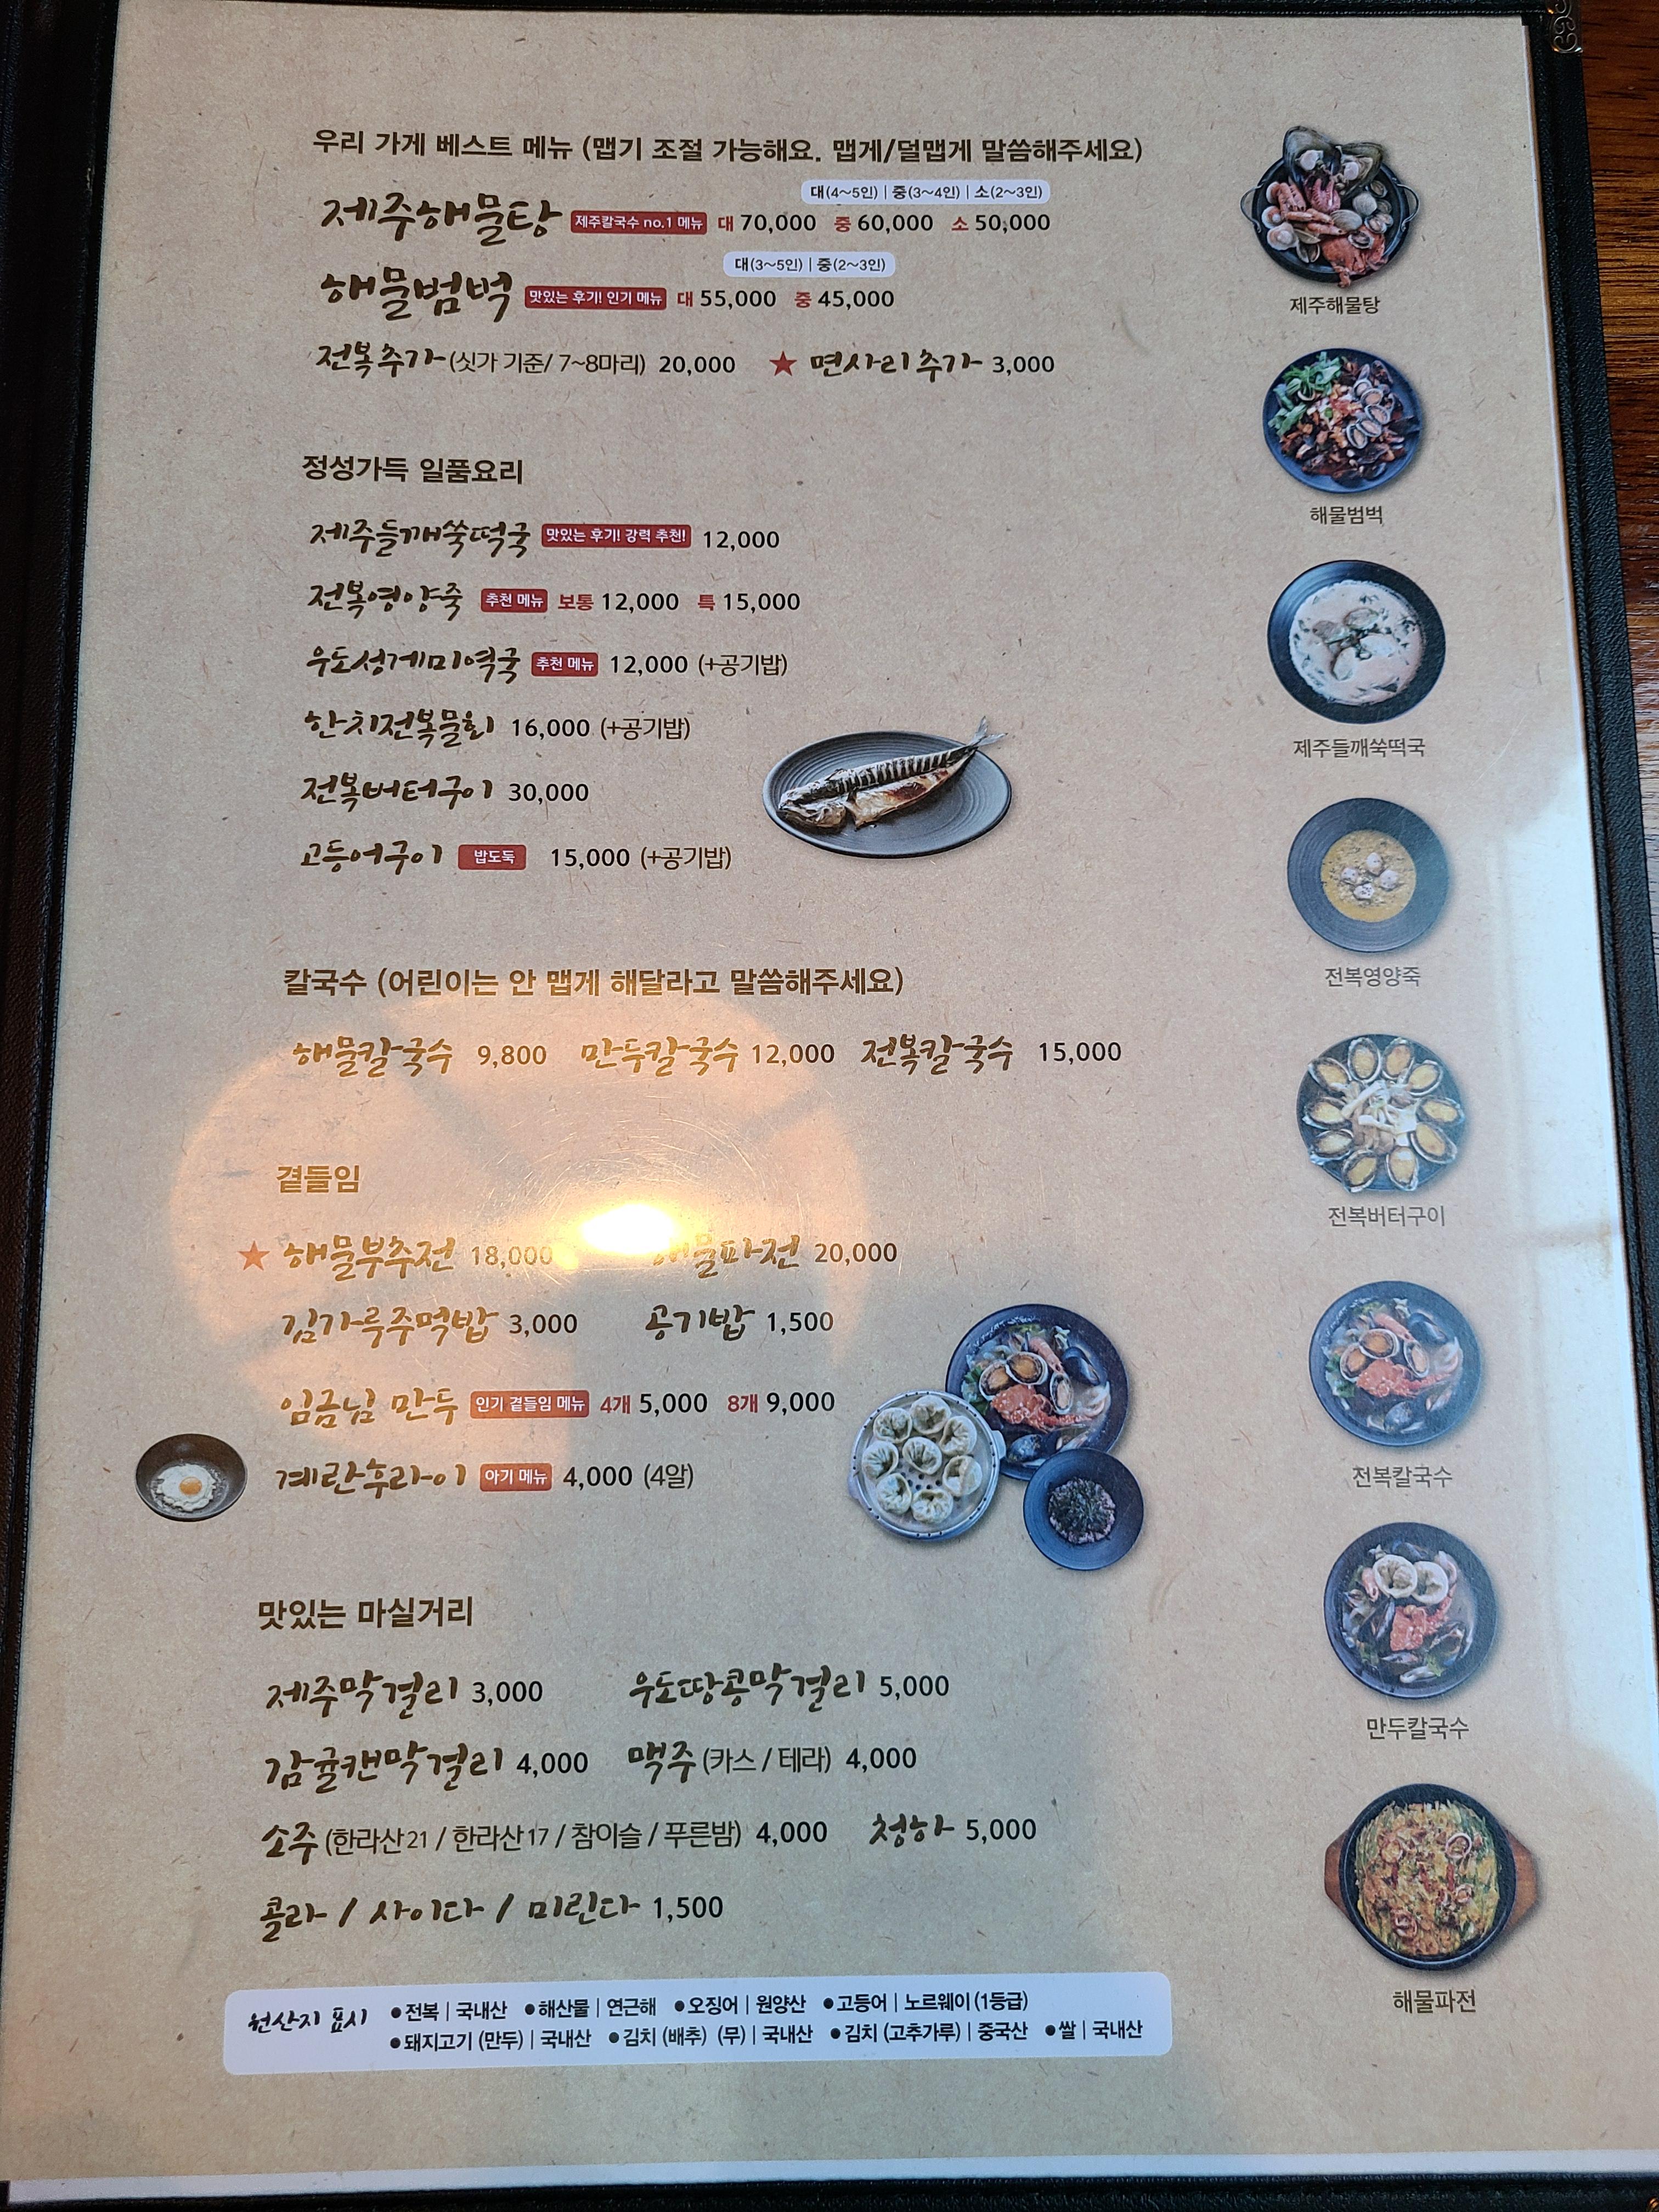 우리 가게 베스트 메뉴 (맵기 조절 가능해요. 맵게/덜맵게 말씀해주세요)
대(4~5인) | 중(3~4인) | 소(2~3인)
제주해물탕 제주칼국수 no.1 메뉴 대 70,000 중 60,000 소 50,000
대(3~5인) | 중(2~3인)
해물범벅 맛있는 후기! 인기 메뉴 대 55,000 중 45,000
전복추가 (싯가 기준/ 7~8마리) 20,000 ★ 면사리추가 3,000
정성가득 일품요리
제주들깨쑥떡국 맛있는 후기! 강력 추천! 12,000
전복영양죽 추천 메뉴 보통 12,000 특 15,000
우도성게미역국 추천 메뉴 12,000 (+공기밥)
한치전복물회 16,000 (+공기밥)
전복버터구이 30,000
고등어구이 밥도둑 15,000 (+공기밥)
칼국수 (어린이는 안 맵게 해달라고 말씀해주세요)
해물칼국수 9,800 만두칼국수 12,000 전복칼국수 15,000
곁들임
★ 해물부추전 18,000 해물파전 20,000
김가루주먹밥 3,000 공기밥 1,500
임금님 만두 인기 곁들임 메뉴 4개 5,000 8개 9,000
계란후라이 아기 메뉴 4,000 (4알)
맛있는 마실거리
제주막걸리 3,000 우도땅콩막걸리 5,000
감귤캔막걸리 4,000 맥주 (카스 / 테라) 4,000
소주 (한라산21 / 한라산17 / 참이슬 / 푸른밤) 4,000 청하 5,000
콜라 / 사이다 / 미린다 1,500
원산지 표시 ●전복 | 국내산 ●해산물 | 연근해 ●오징어 | 원양산 ●고등어 | 노르웨이 (1등급)
●돼지고기 (만두) | 국내산 ●김치 (배추) (무) | 국내산 ●김치 (고추가루) | 중국산 ●쌀 | 국내산
제주해물탕
해물범벅
제주들깨쑥떡국
전복영양죽
전복버터구이
전복칼국수
만두칼국수
해물파전